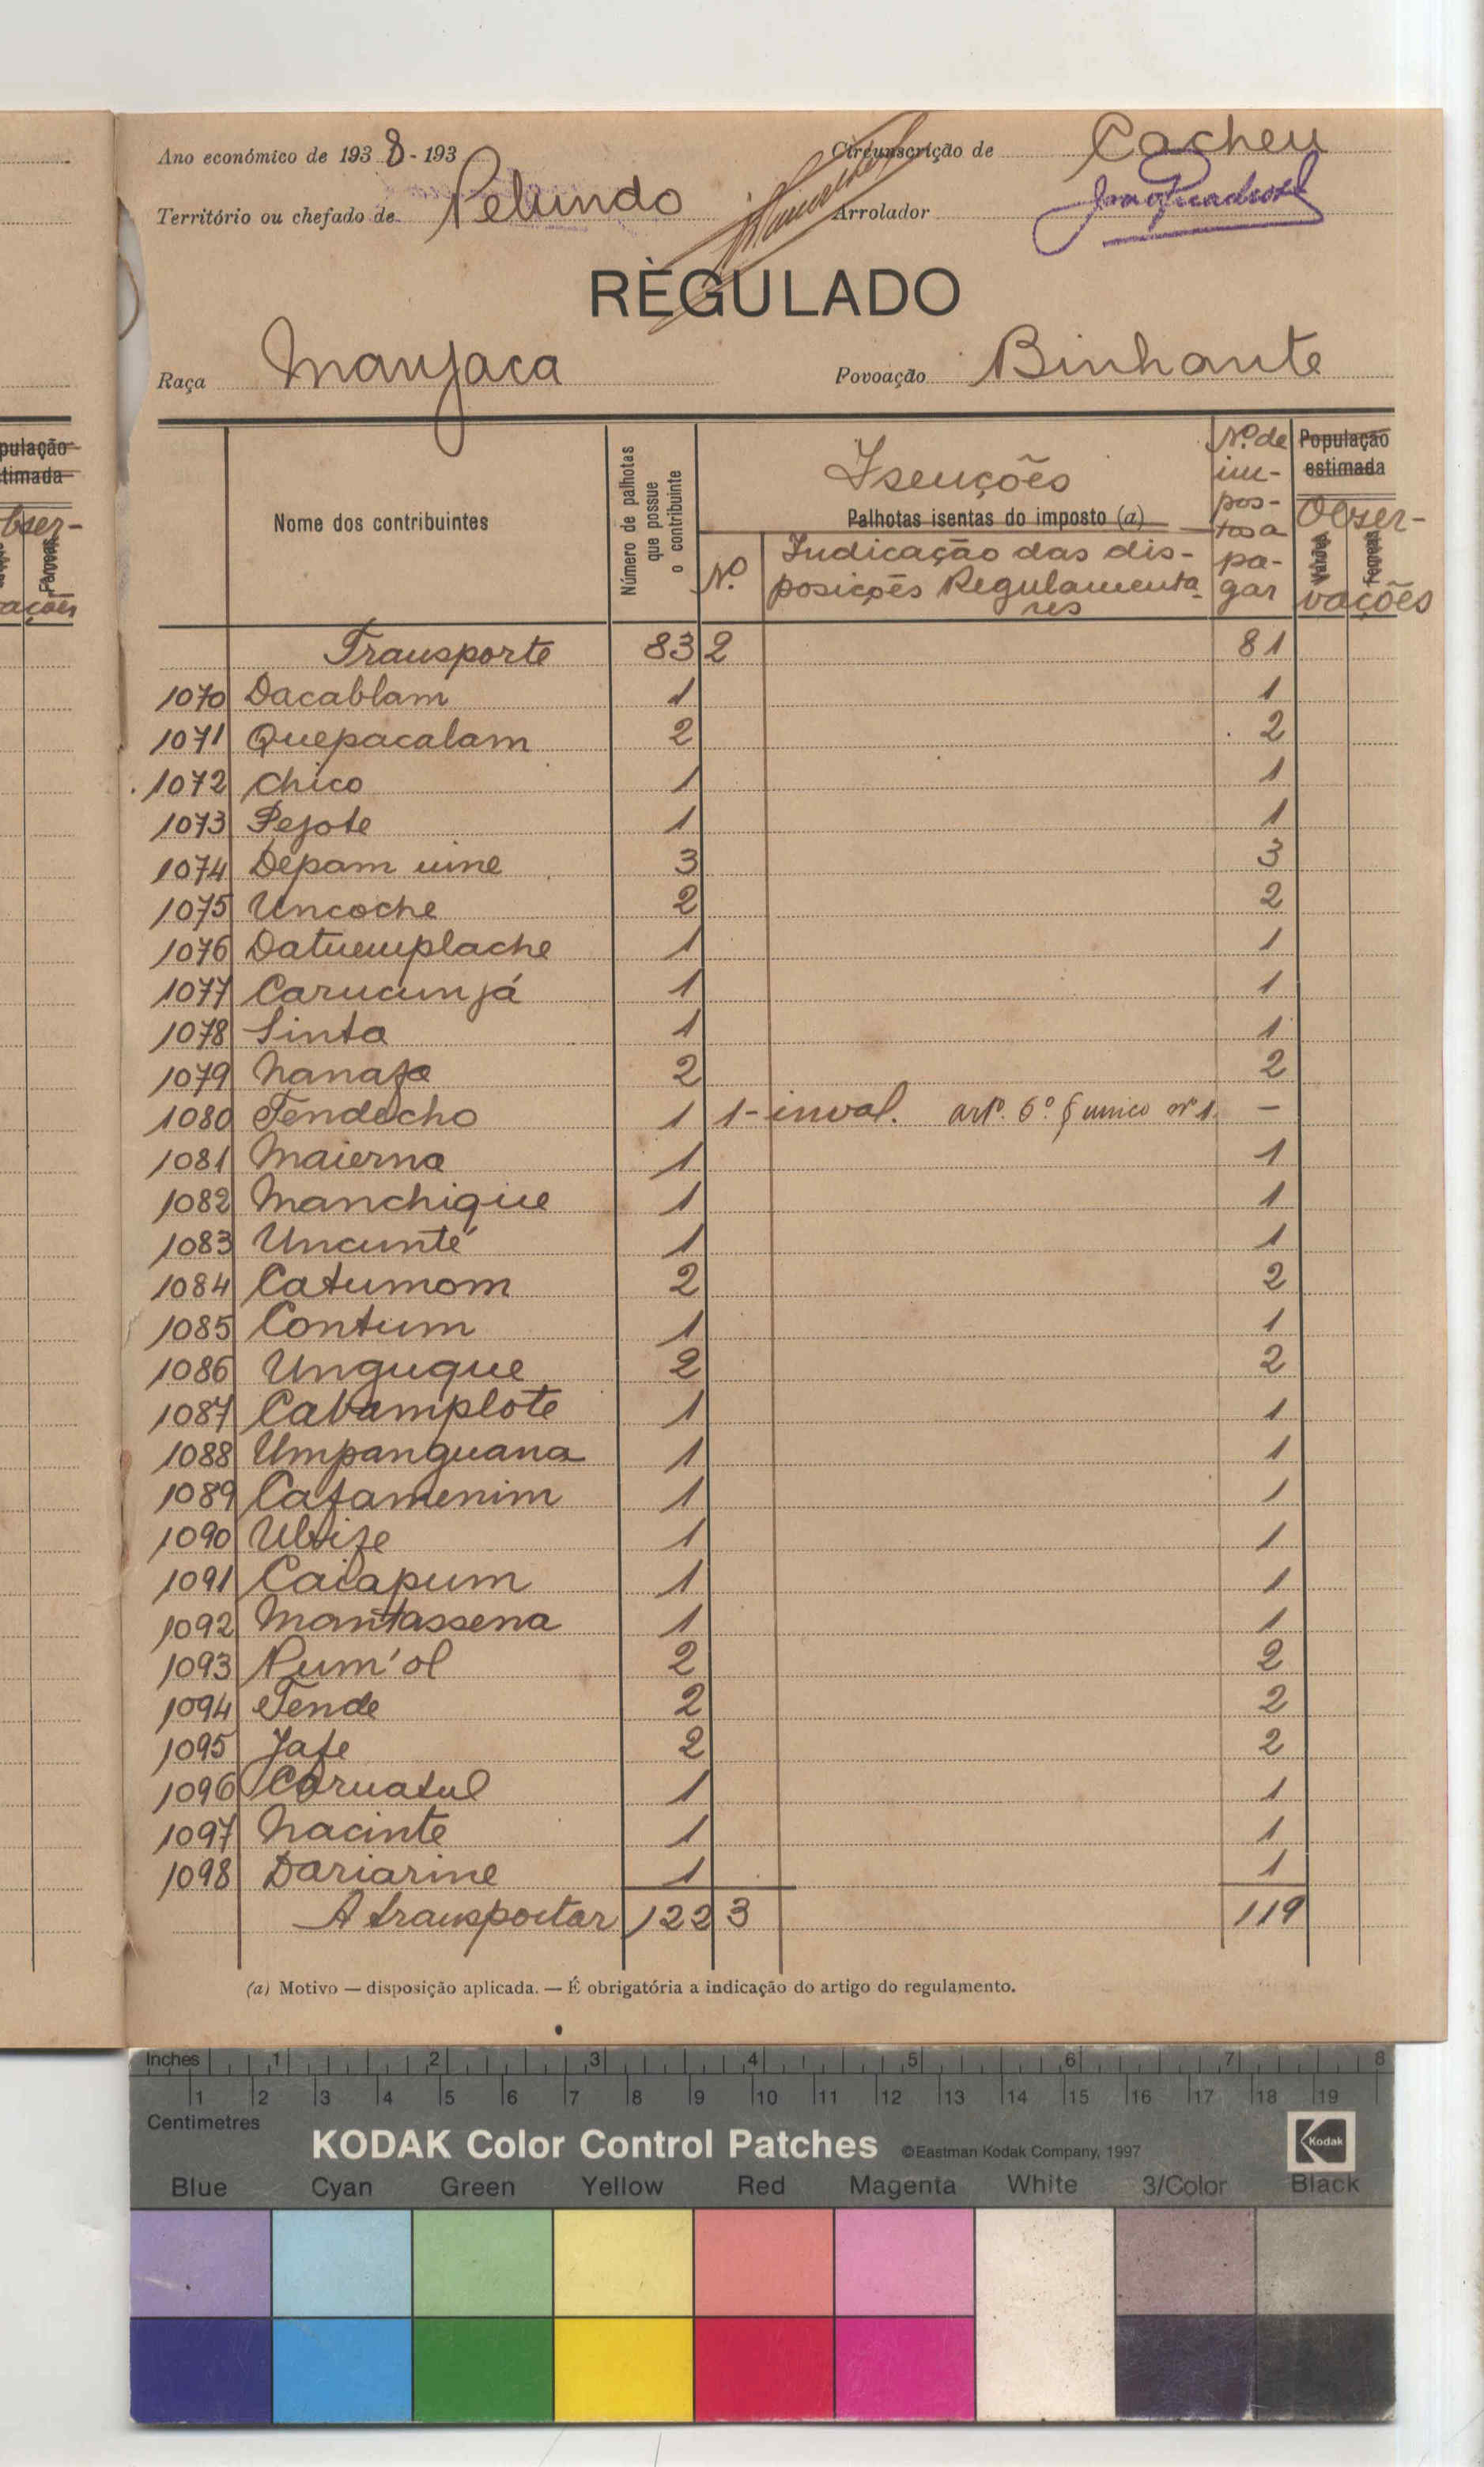 Ano económico de 1938-193
Circunscrição de Cacheu
Território ou chefado de Pelundo
Arrolador
RÈGULADO
Raça Manjaca
Povoação Binhante
pulação
timada
bser-
ações
Nome dos contribuintes
Número de palhotas
que possue
o contribuinte
Isenções
Palhotas isentas do imposto (a)
Nº
Indicação das dis-
posições Regulamenta-
res
Nº de
im-
pos-
tos a
pa-
gar
População
estimada
Obser-
Varões
Femeas
vações
Transporte 83 2 81
1070 Dacablam 1 1
1071 Quepacalam 2 2
1072 Chico 1 1
1073 Pejote 1 1
1074 Depam uine 3 3
1075 Uncoche 2 2
1076 Datuemplache 1 1
1077 Carucunjá 1 1
1078 Sinta 1 1
1079 Nanafa 2 2
1080 Tendecho 1 1-inval. artº. 6º. § unico nº 1. —
1081 Maierna 1 1
1082 Manchique 1 1
1083 Uncunté 1 1
1084 Catumom 2 2
1085 Contum 1 1
1086 Unguque 2 2
1087 Cabamplote 1 1
1088 Umpanguana 1 1
1089 Cafamenim 1 1
1090 1 1
1091 Caiapum 1 1
1092 Mantassena 1 1
1093 Pum'ol 2 2
1094 Tende 2 2
1095 Jafe 2 2
1096 Coruatul 1 1
1097 Nacinte 1 1
1098 Dariarine 1 1
A transportar 122 3 119
(a) Motivo — disposição aplicada. — É obrigatória a indicação do artigo do regulamento.
Inches 1 2 3 4 5 6 7 8
1 2 3 4 5 6 7 8 9 10 11 12 13 14 15 16 17 18 19
Centimetres
KODAK Color Control Patches ©Eastman Kodak Company, 1997 Kodak
Blue Cyan Green Yellow Red Magenta White 3/Color Black